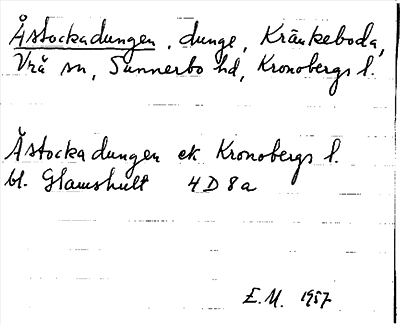 Åstockadungen, dunge, Kränkeboda,
Vrå sn, Sunnerbo hd, Kronobergs l.
Åstockadungen ek Kronobergs l.
bl. Glamshult 4D8a
E.M. 1957